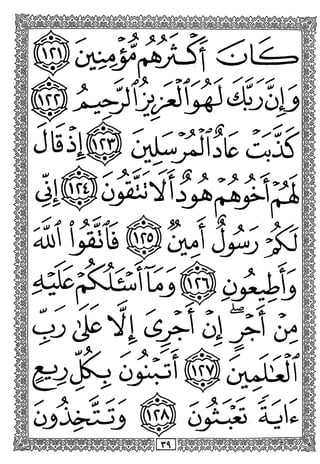 كَانَ أَكْثَرُهُم مُّؤْمِنِينَ ١٢١
وَإِنَّ رَبَّكَ لَهُوَ الْعَزِيزُ الرَّحِيمُ ١٢٢
كَذَّبَتْ عَادٌ الْمُرْسَلِينَ ١٢٣ إِذْ قَالَ
لَهُمْ أَخُوهُمْ هُودٌ أَلَا تَتَّقُونَ ١٢٤ إِنِّي
لَكُمْ رَسُولٌ أَمِينٌ ١٢٥ فَاتَّقُوا اللَّهَ
وَأَطِيعُونِ ١٢٦ وَمَا أَسْـَٔلُكُمْ عَلَيْهِ
مِنْ أَجْرٍ ۖ إِنْ أَجْرِيَ إِلَّا عَلَىٰ رَبِّ
الْعَالَمِينَ ١٢٧ أَتَبْنُونَ بِكُلِّ رِيعٍ
ءَايَةً تَعْبَثُونَ ١٢٨ وَتَتَّخِذُونَ
٣٩